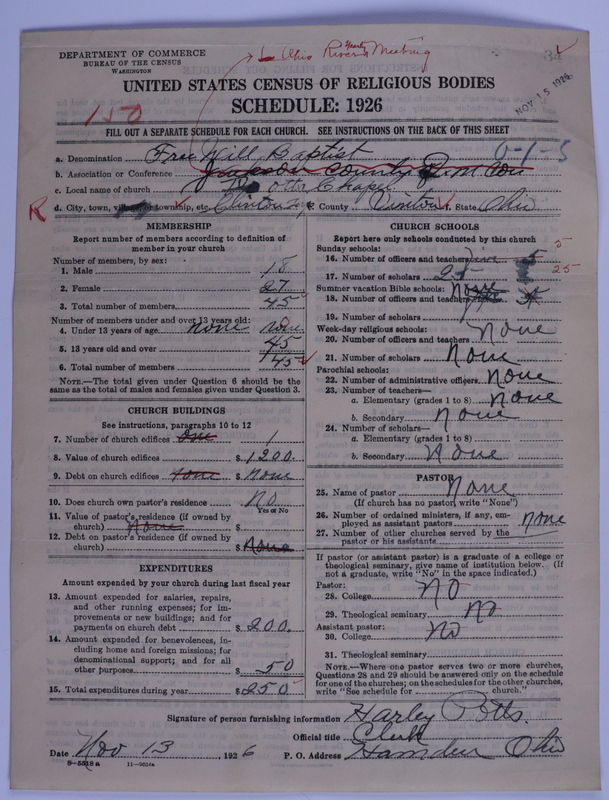 DEPARTMENT OF COMMERCE
BUREAU OF THE CENSUS
WASHINGTON
Ohio River Yearly Meeting
34
NOV 15 1926
UNITED STATES CENSUS OF RELIGIOUS BODIES
SCHEDULE: 1926
150
FILL OUT A SEPARATE SCHEDULE FOR EACH CHURCH. SEE INSTRUCTIONS ON THE BACK OF THIS SHEET
a. Denomination Free Will Baptist 0-1-5
b. Association or Conference Jackson County Q. M. Con
c. Local name of church Potts Chapel
R d. City, town, village, or township, etc. Clinton Tp County Vinton State Ohio
MEMBERSHIP
Report number of members according to definition of
member in your church
Number of members, by sex:
1. Male 18
2. Female 27
3. Total number of members 45
Number of members under and over 13 years old:
4. Under 13 years of age none none
5. 13 years old and over 45
6. Total number of members 45
NOTE.—The total given under Question 6 should be
the same as the total of males and females given under Question 3.
CHURCH BUILDINGS
See instructions, paragraphs 10 to 12
7. Number of church edifices one 1
8. Value of church edifices $ 1200.
9. Debt on church edifices none $ None
10. Does church own pastor's residence NO
Yes or No
11. Value of pastor's residence (if owned by
church) None $
12. Debt on pastor's residence (if owned by
church) $ None
EXPENDITURES
Amount expended by your church during last fiscal year
13. Amount expended for salaries, repairs,
and other running expenses; for im-
provements or new buildings; and for
payments on church debt $ 200.
14. Amount expended for benevolences, in-
cluding home and foreign missions; for
denominational support; and for all
other purposes $ 50
15. Total expenditures during year $ 250
CHURCH SCHOOLS
Report here only schools conducted by this church
Sunday schools:
16. Number of officers and teachers five 5 5
17. Number of scholars 25 25
Summer vacation Bible schools: None
18. Number of officers and teachers
19. Number of scholars
Week-day religious schools:
20. Number of officers and teachers None
21. Number of scholars None
Parochial schools:
22. Number of administrative officers None
23. Number of teachers—
a. Elementary (grades 1 to 8) None
b. Secondary None
24. Number of scholars—
a. Elementary (grades 1 to 8)
b. Secondary None
PASTOR
25. Name of pastor None
(If church has no pastor, write "None")
26. Number of ordained ministers, if any, em-
ployed as assistant pastors none
27. Number of other churches served by the
pastor or his assistants
If pastor (or assistant pastor) is a graduate of a college or
theological seminary, give name of institution below. (If
not a graduate, write "No" in the space indicated.)
Pastor:
28. College NO
29. Theological seminary No
Assistant pastor:
30. College No
31. Theological seminary
NOTE.—Where one pastor serves two or more churches,
Questions 28 and 29 should be answered only on the schedule
for one of the churches; on the schedules for the other churches,
write "See schedule for church."
Signature of person furnishing information Harley Potts.
Official title Clerk
Date Nov 13, 1926 P. O. Address Hamden Ohio
8-5518 a 11-9804a